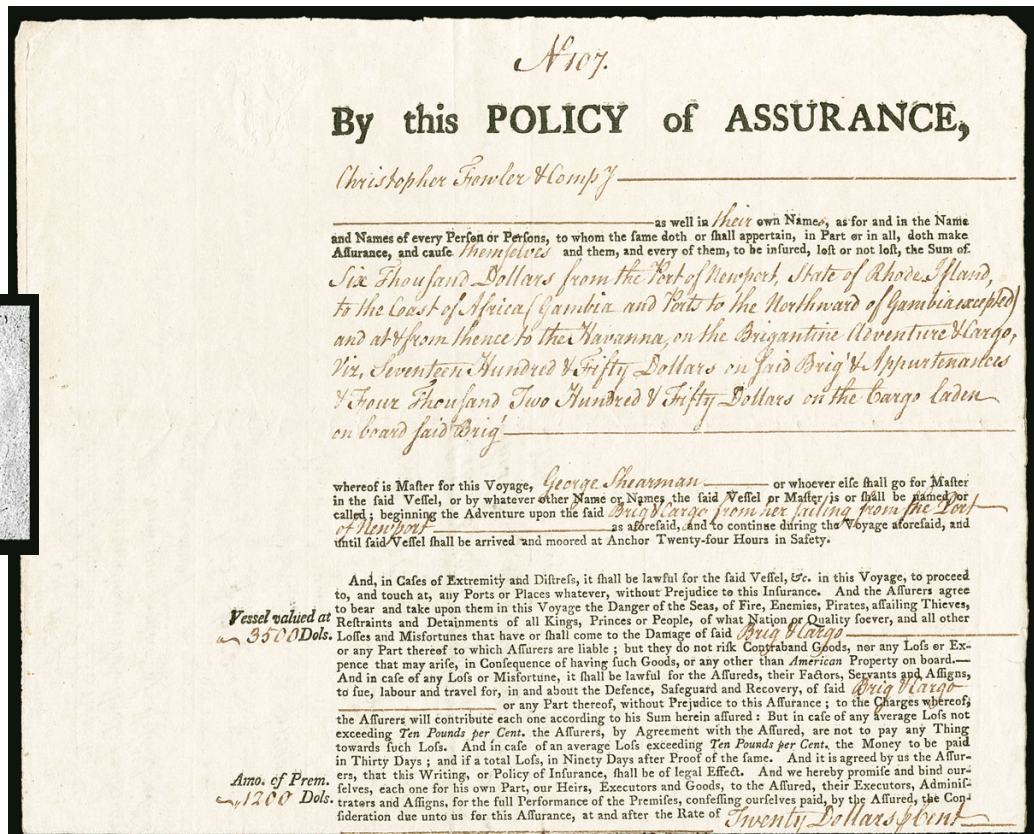 No 107.
By this POLICY of ASSURANCE,
Christopher Fowler & Compy
as well in their own Names, as for and in the Name
and Names of every Perſon or Perſons, to whom the ſame doth or ſhall appertain, in Part or in all, doth make
Aſſurance, and cauſe themselves and them, and every of them, to be inſured, loſt or not loſt, the Sum of
Six Thouſand Dollars from the Port of Newport, State of Rhode Iſland,
to the Coast of Africa (Gambia and Ports to the Northward of Gambia excepted)
and at & from thence to the Havanna, on the Brigantine Adventure & Cargo,
Viz, Seventeen Hundred & Fifty Dollars on ſaid Brig & Appurtenances
& Four Thouſand Two Hundred & Fifty Dollars on the Cargo laden
on board ſaid Brig
whereof is Maſter for this Voyage, George Shearman or whoever elſe ſhall go for Maſter
in the ſaid Veſſel, or by whatever other Name or Names the ſaid Veſſel or Maſter is or ſhall be named or
called; beginning the Adventure upon the ſaid Brig & Cargo from her ſailing from the Port
of Newport as aforeſaid, and to continue during the Voyage aforeſaid, and
until ſaid Veſſel ſhall be arrived and moored at Anchor Twenty-four Hours in Safety.
And, in Caſes of Extremity and Diſtreſs, it ſhall be lawful for the ſaid Veſſel, &c. in this Voyage, to proceed
to, and touch at, any Ports or Places whatever, without Prejudice to this Inſurance. And the Aſſurers agree
to bear and take upon them in this Voyage the Danger of the Seas, of Fire, Enemies, Pirates, aſſailing Thieves,
Vessel valued at
Reſtraints and Detainments of all Kings, Princes or People, of what Nation or Quality ſoever, and all other
3500 Dols.
Loſſes and Misfortunes that have or ſhall come to the Damage of ſaid Brig & Cargo
or any Part thereof to which Aſſurers are liable; but they do not riſk Contraband Goods, nor any Loſs or Ex-
pence that may ariſe, in Conſequence of having ſuch Goods, or any other than American Property on board.—
And in caſe of any Loſs or Misfortune, it ſhall be lawful for the Aſſureds, their Factors, Servants and Aſſigns,
to ſue, labour and travel for, in and about the Defence, Safeguard and Recovery, of ſaid Brig & Cargo
or any Part thereof, without Prejudice to this Aſſurance; to the Charges whereof,
the Aſſurers will contribute each one according to his Sum herein aſſured: But in caſe of any average Loſs not
exceeding Ten Pounds per Cent. the Aſſurers, by Agreement with the Aſſured, are not to pay any Thing
towards ſuch Loſs. And in caſe of an average Loſs exceeding Ten Pounds per Cent. the Money to be paid
in Thirty Days; and if a total Loſs, in Ninety Days after Proof of the ſame. And it is agreed by us the Aſſur-
ers, that this Writing, or Policy of Inſurance, ſhall be of legal Effect. And we hereby promiſe and bind our-
Amo. of Prem.
ſelves, each one for his own Part, our Heirs, Executors and Goods, to the Aſſured, their Executors, Adminiſ-
1200 Dols.
trators and Aſſigns, for the full Performance of the Premiſes, confeſſing ourſelves paid, by the Aſſured, the Con-
ſideration due unto us for this Aſſurance, at and after the Rate of Twenty Dollars ⅌ Cent